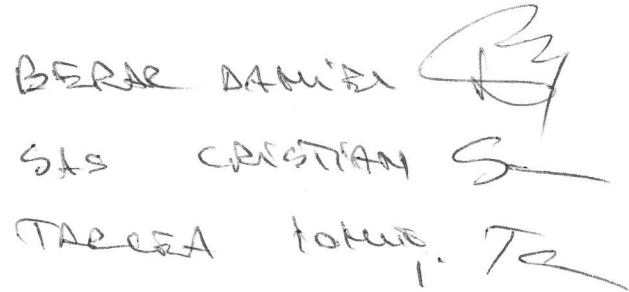 BERAR DANIEL
SAS CRISTIAN
TARCEA IONUȚ.